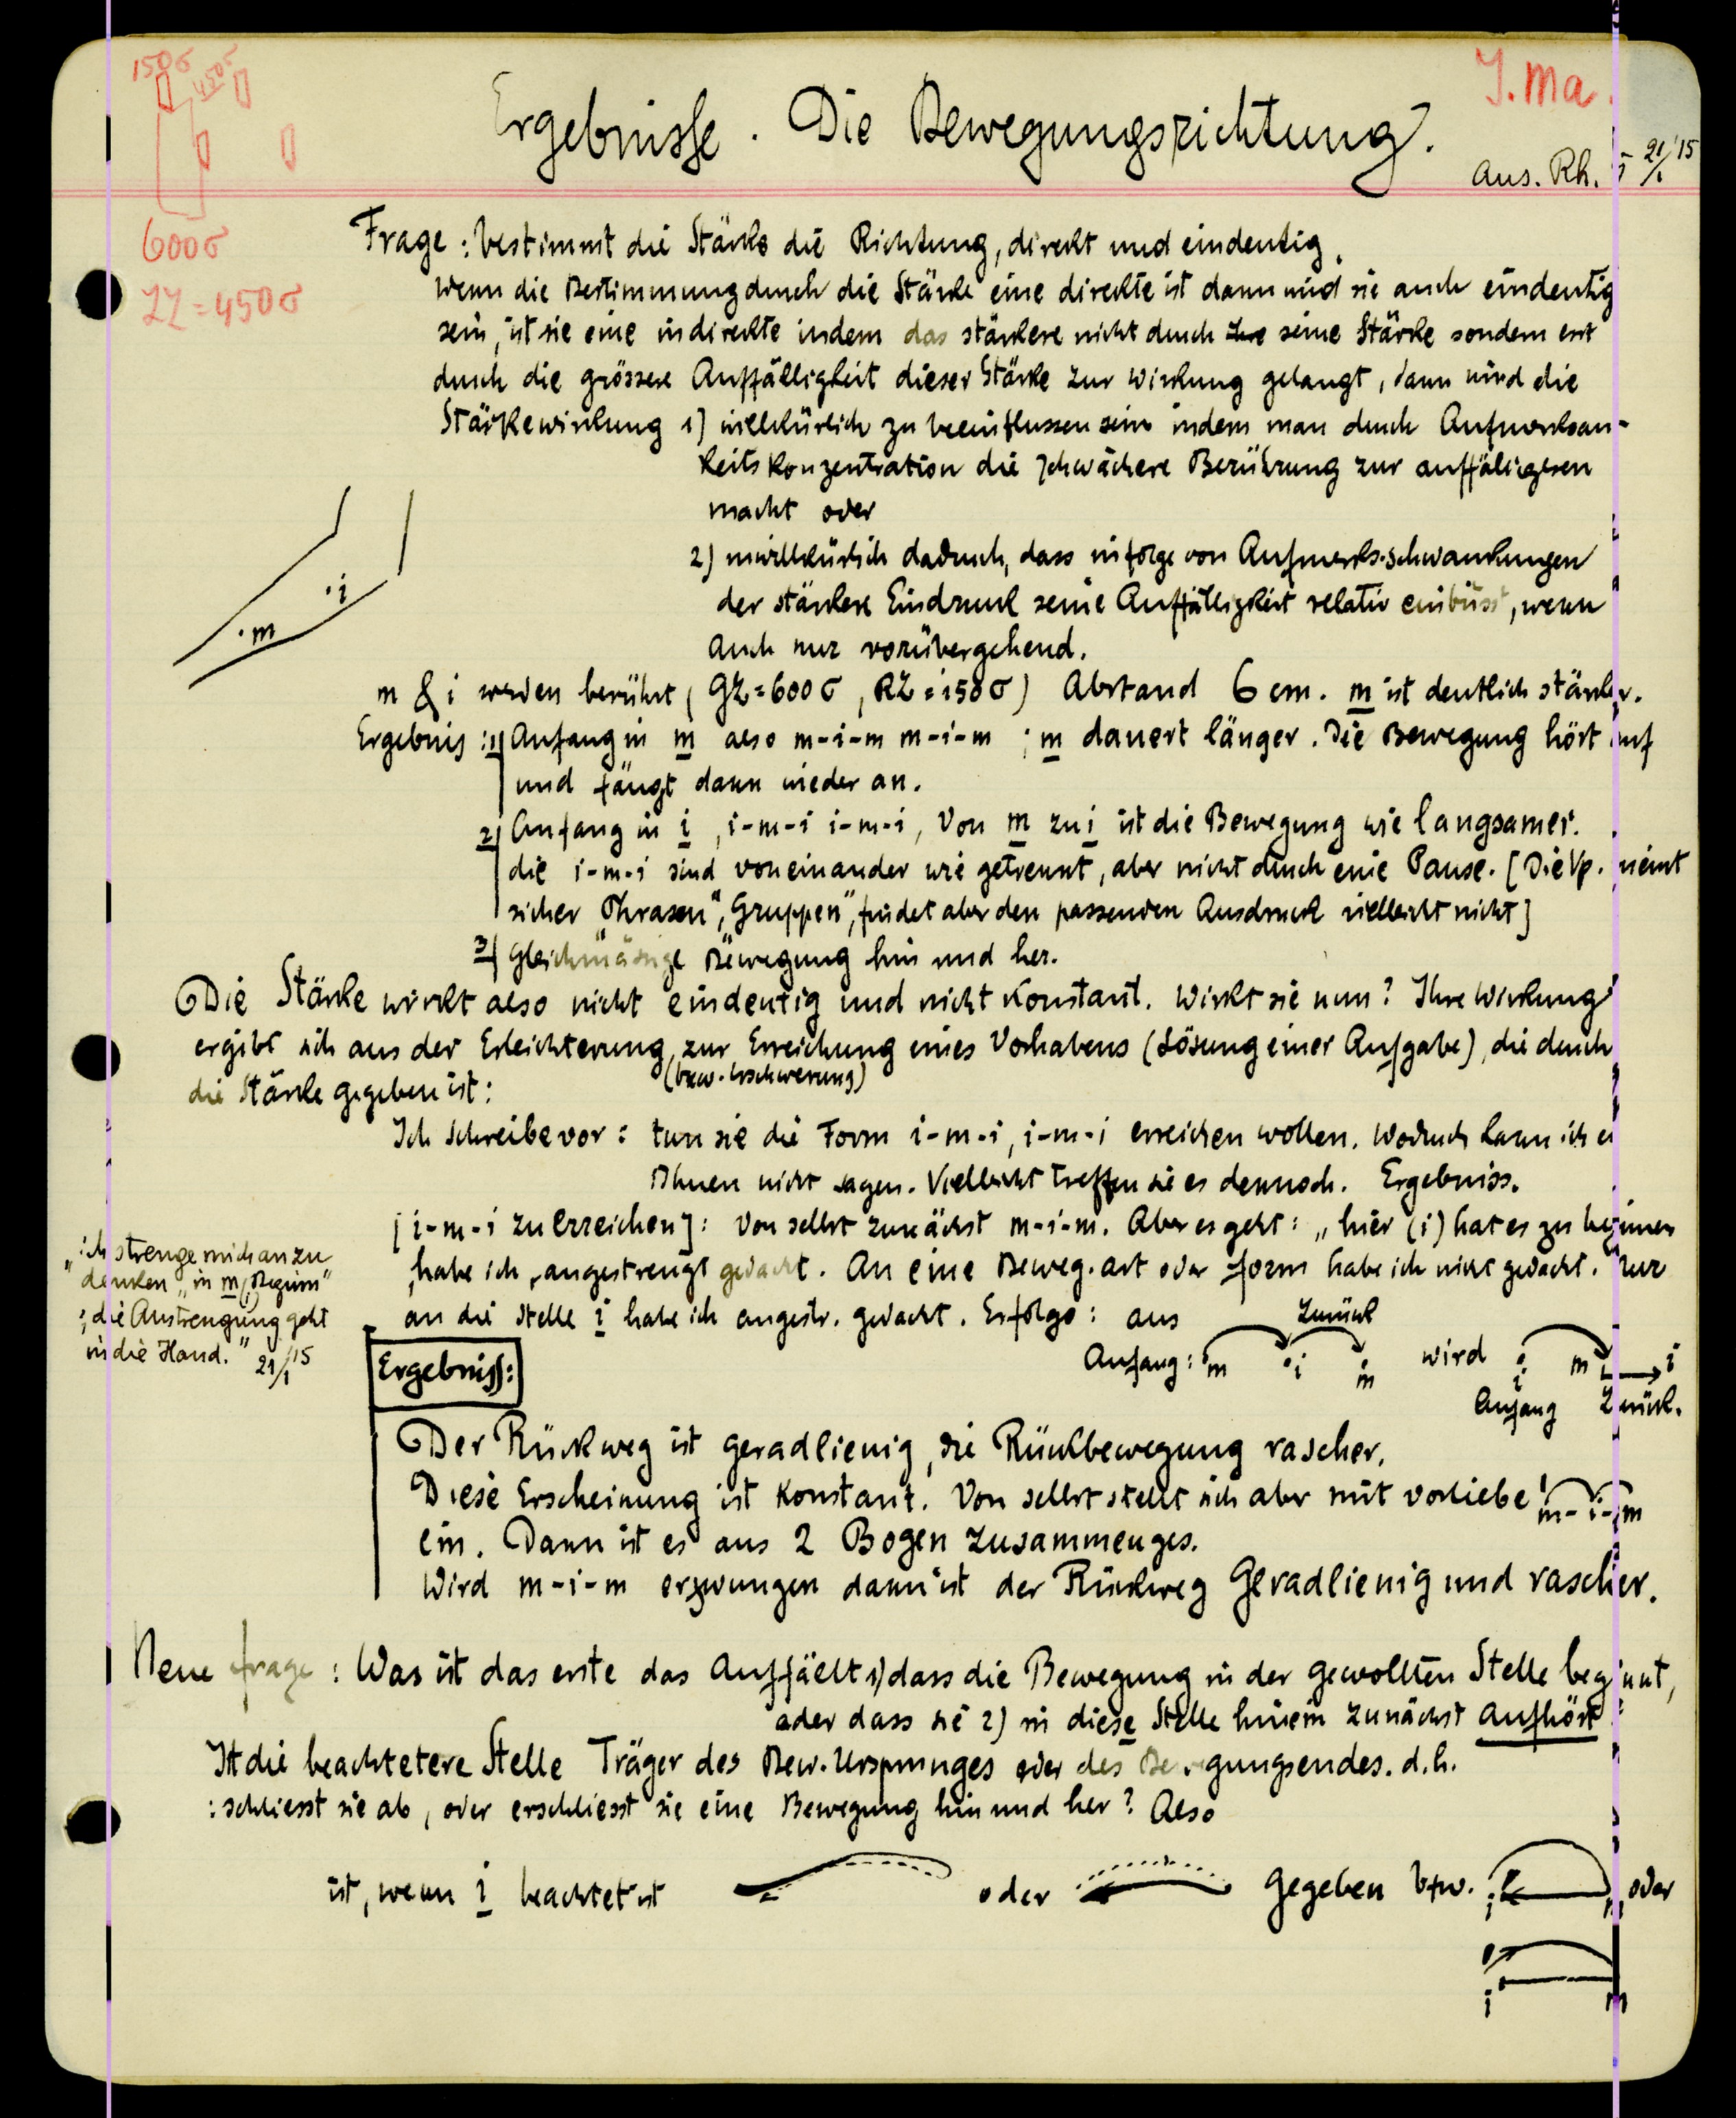 150σ 450σ
J. Ma.
Ergebnisse. Die Bewegungsrichtung.
aus. Rh. 21/1 15
600σ
ZZ = 450σ
Frage: bestimmt die Stärke die Richtung, direkt und eindeutig.
Wenn die Bestimmung durch die Stärke eine direkte ist dann wird sie auch eindeutig
sein, ist sie eine indirekte indem das stärkere nicht durch seine Stärke sondern erst
durch die grössere Auffälligkeit dieser Stärke zur Wirkung gelangt, dann wird die
Stärkewirkung 1) willkürlich zu beeinflussen sein indem man durch Aufmerksam-
keits Konzentration die schwächere Berührung zur auffäligeren
macht oder
2) unwillkürlich dadurch, dass infolge von Aufmerks.schwankungen
der stärkere Eindruck seine Auffälligkeit relativ einbüsst, wenn
auch nur vorübergehend.
i
m
m & i werden berührt (GZ = 600σ, RZ = 150σ) Abstand 6 cm. m ist deutlich stärker.
Ergebnis: 1) Anfang in m also m-i-m m-i-m ; m dauert länger. Die Bewegung hört auf
und fängt dann wieder an.
2) Anfang in i, i-m-i i-m-i, Von m zu i ist die Bewegung wie langsamer.
die i-m-i sind voneinander wie getrennt, aber nicht durch eine Pause. [Die Vp. meint
sicher „Phrasen", „Gruppen", findet aber den passenden Ausdruck vielleicht nicht]
3) Gleichmässige Bewegung hin und her.
Die Stärke wirkt also nicht eindeutig und nicht Konstant. Wirkt sie nun? Ihre Wirkung
ergibt sich aus der Erleichterung, zur Erreichung eines Vorhabens (Lösung einer Aufgabe), die durch
(bzw. Erschwerung)
die Stärke gegeben ist:
Ich schreibe vor: tun sie die Form i-m-i, i-m-i erreichen wollen. Wodurch kann ich es
Ihnen nicht sagen. Vielleicht treffen sie es dennoch. Ergebniss.
[i-m-i zu erreichen]: Von selbst zunächst m-i-m. Aber es geht: „hier (i) hat es zu beginnen
habe ich angestrengt gedacht. An eine Beweg.art oder form habe ich nicht gedacht. Nur
an die Stelle i habe ich angestr. gedacht. Erfolgs: aus
„ich strenge mich an zu
denken „in m Beginn"
; die Anstrengung geht
in die Hand." 21/1 15
zurück
Anfang: m i m wird i m i
Anfang Zurück.
Ergebniss:
Der Rückweg ist geradlienig, die Rückbewegung rascher.
Diese Erscheinung ist Konstant. Von selbst stellt sich aber mit vorliebe m-i-m
ein. Dann ist es aus 2 Bogen zusammenges.
Wird m-i-m erzwungen dann ist der Rückweg Geradlienig und rascher.
Neue frage: Was ist das erste das Auffäellt 1) dass die Bewegung in der gewollten Stelle beginnt,
oder dass sie 2) in diese Stelle hinein zunächst aufhört
Ist die beachtetere Stelle Träger des Bew. Ursprunges oder des Bewegungsendes. d.h.
: schliesst sie ab, oder erschliesst sie eine Bewegung hin und her? Also
ist, wenn i beachtet ist oder gegeben bzw. i m oder
i m